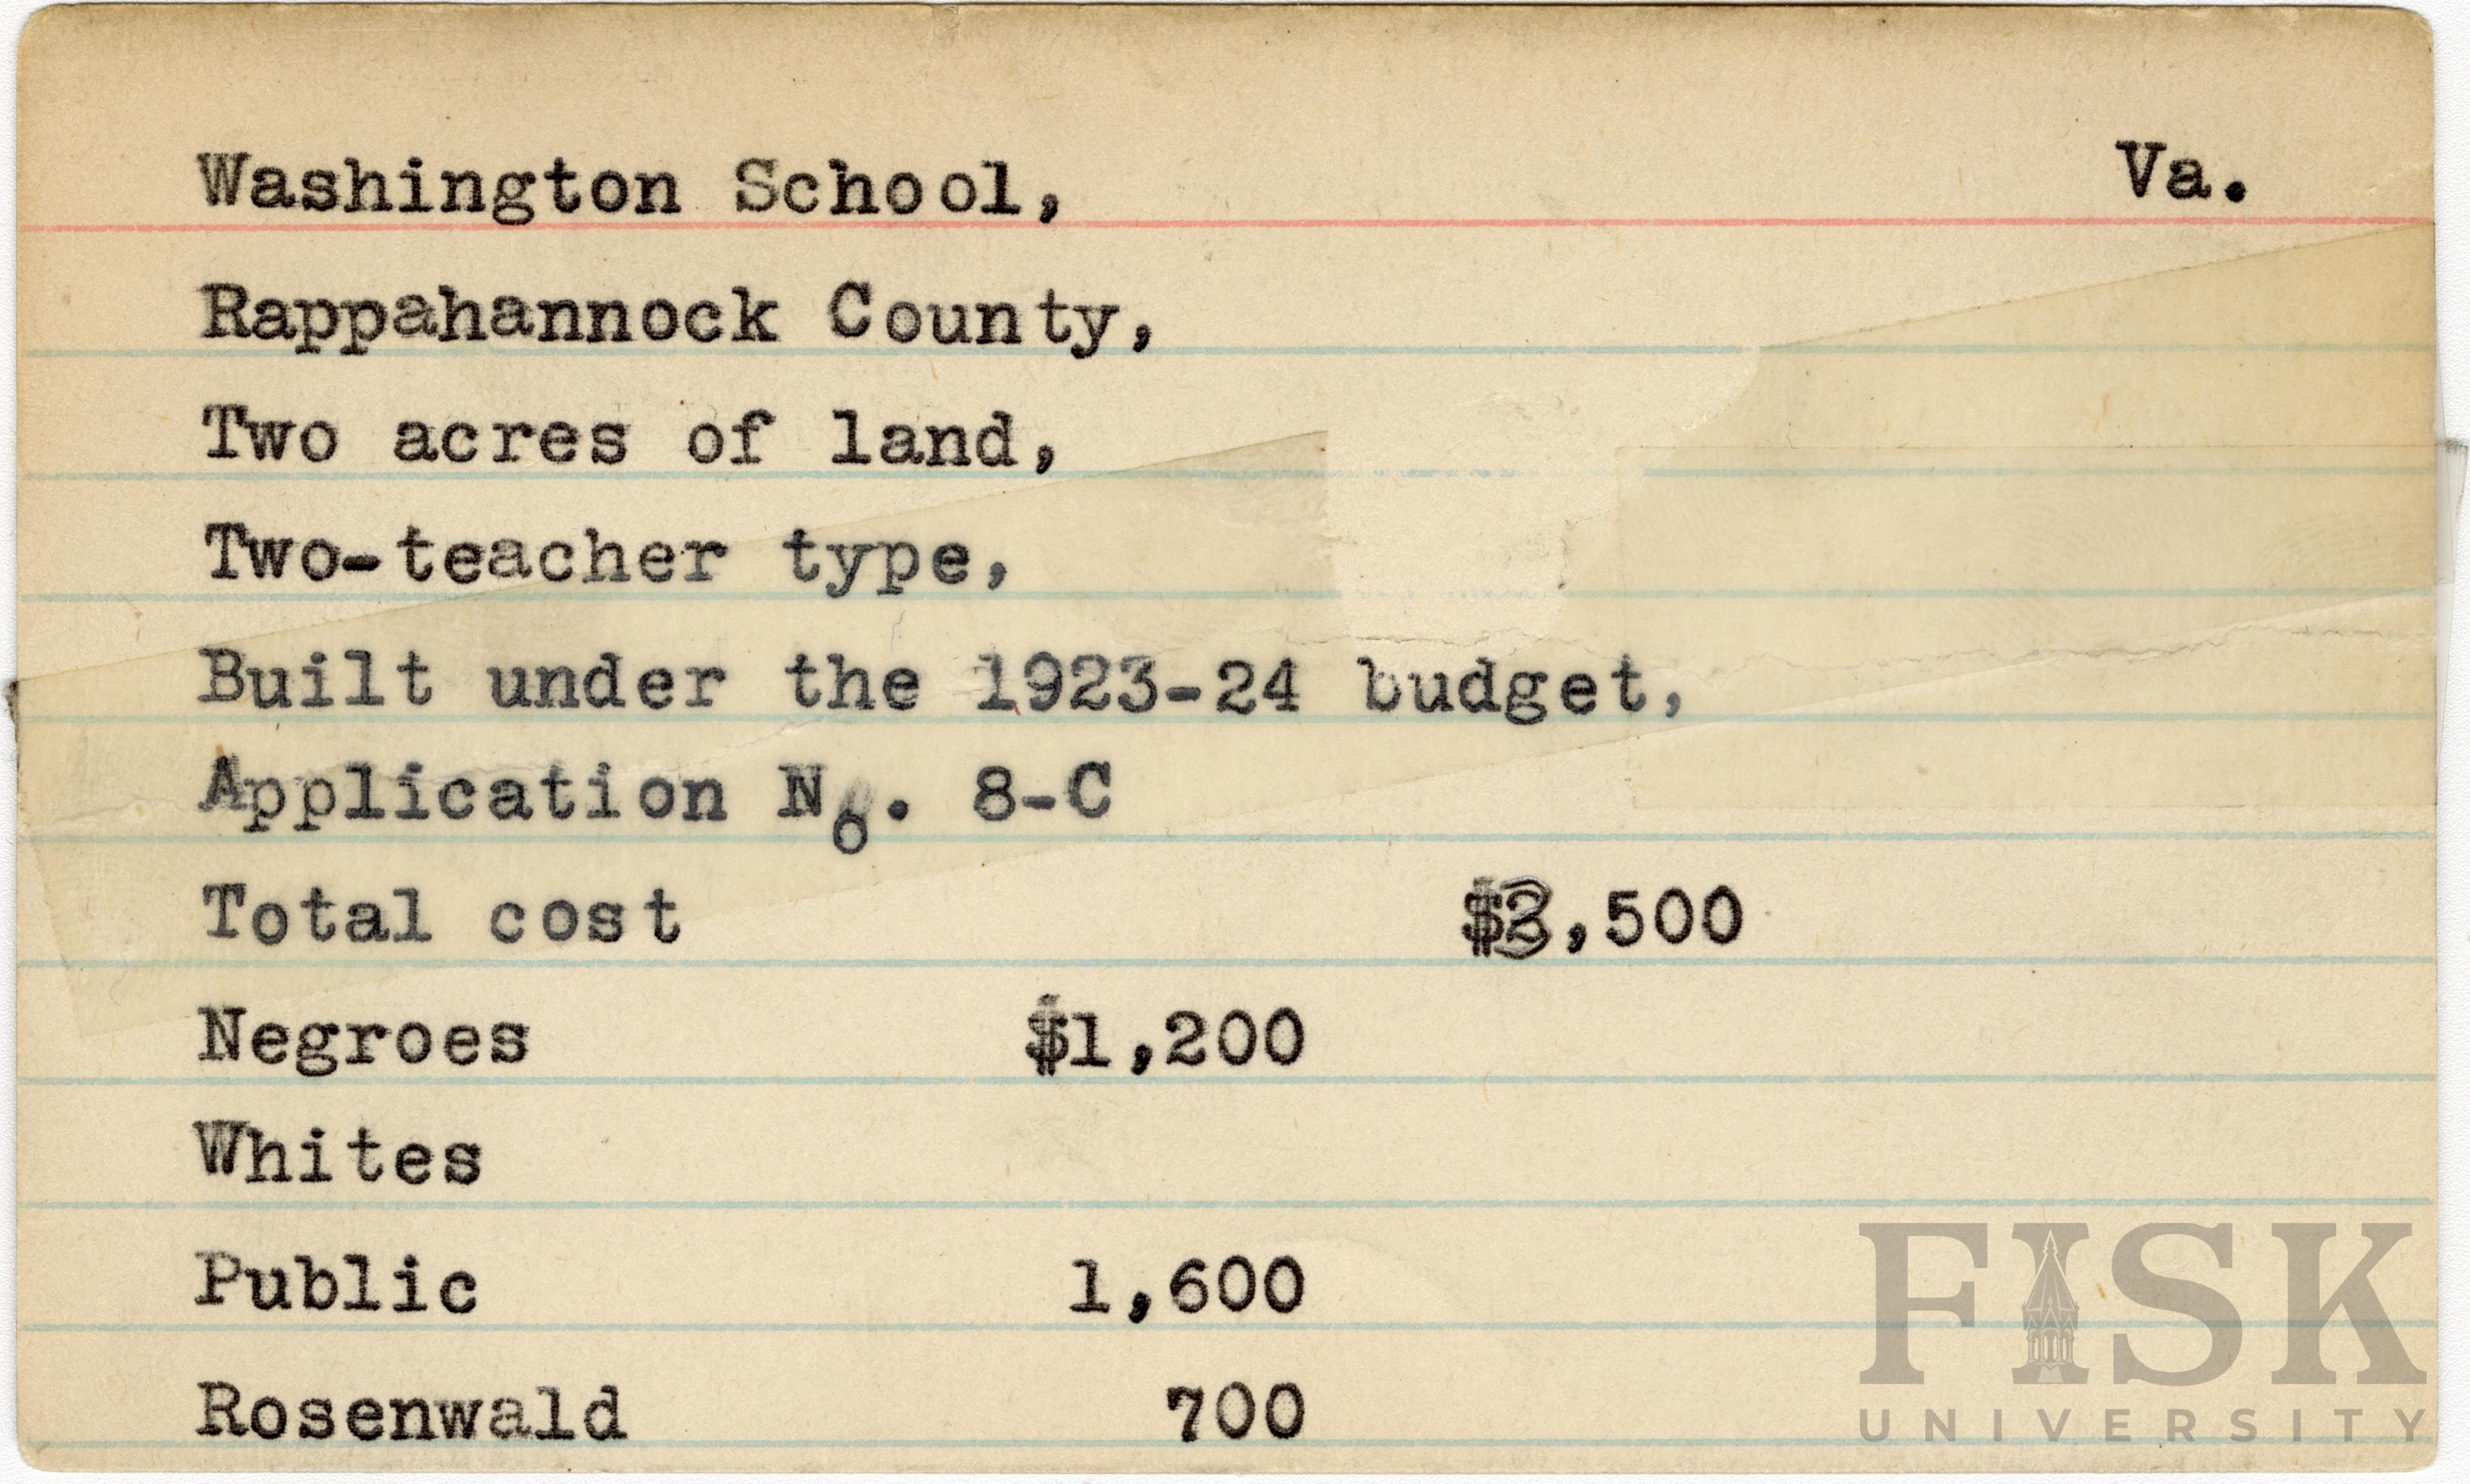 Washington School, Va.
Rappahannock County,
Two acres of land,
Two-teacher type,
Built under the 1923-24 budget,
Application No. 8-C
Total cost $3,500
Negroes $1,200
Whites
Public 1,600
Rosenwald 700
FISK
UNIVERSITY